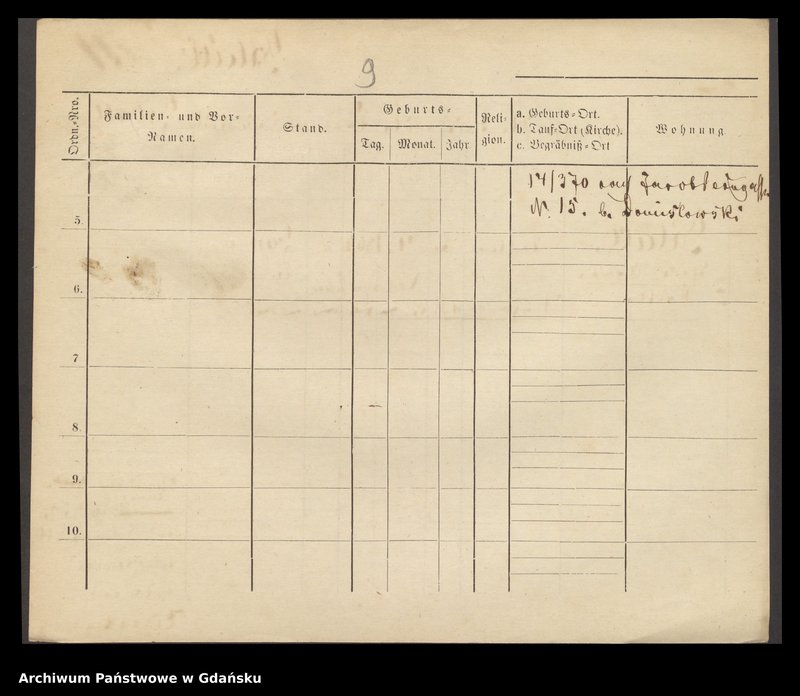 9
Ordn.-Nro.
Familien- und Vor-
Namen.
Stand.
Geburts-
Tag.
Monat.
Jahr
Reli-
gion.
a. Geburts-Ort.
b. Tauf-Ort (Kirche).
c. Begräbniß-Ort
Wohnung
14/3 70 nach
N. 15. b. Domislowski
5.
6.
7
8.
9.
10.
Archiwum Państwowe w Gdańsku